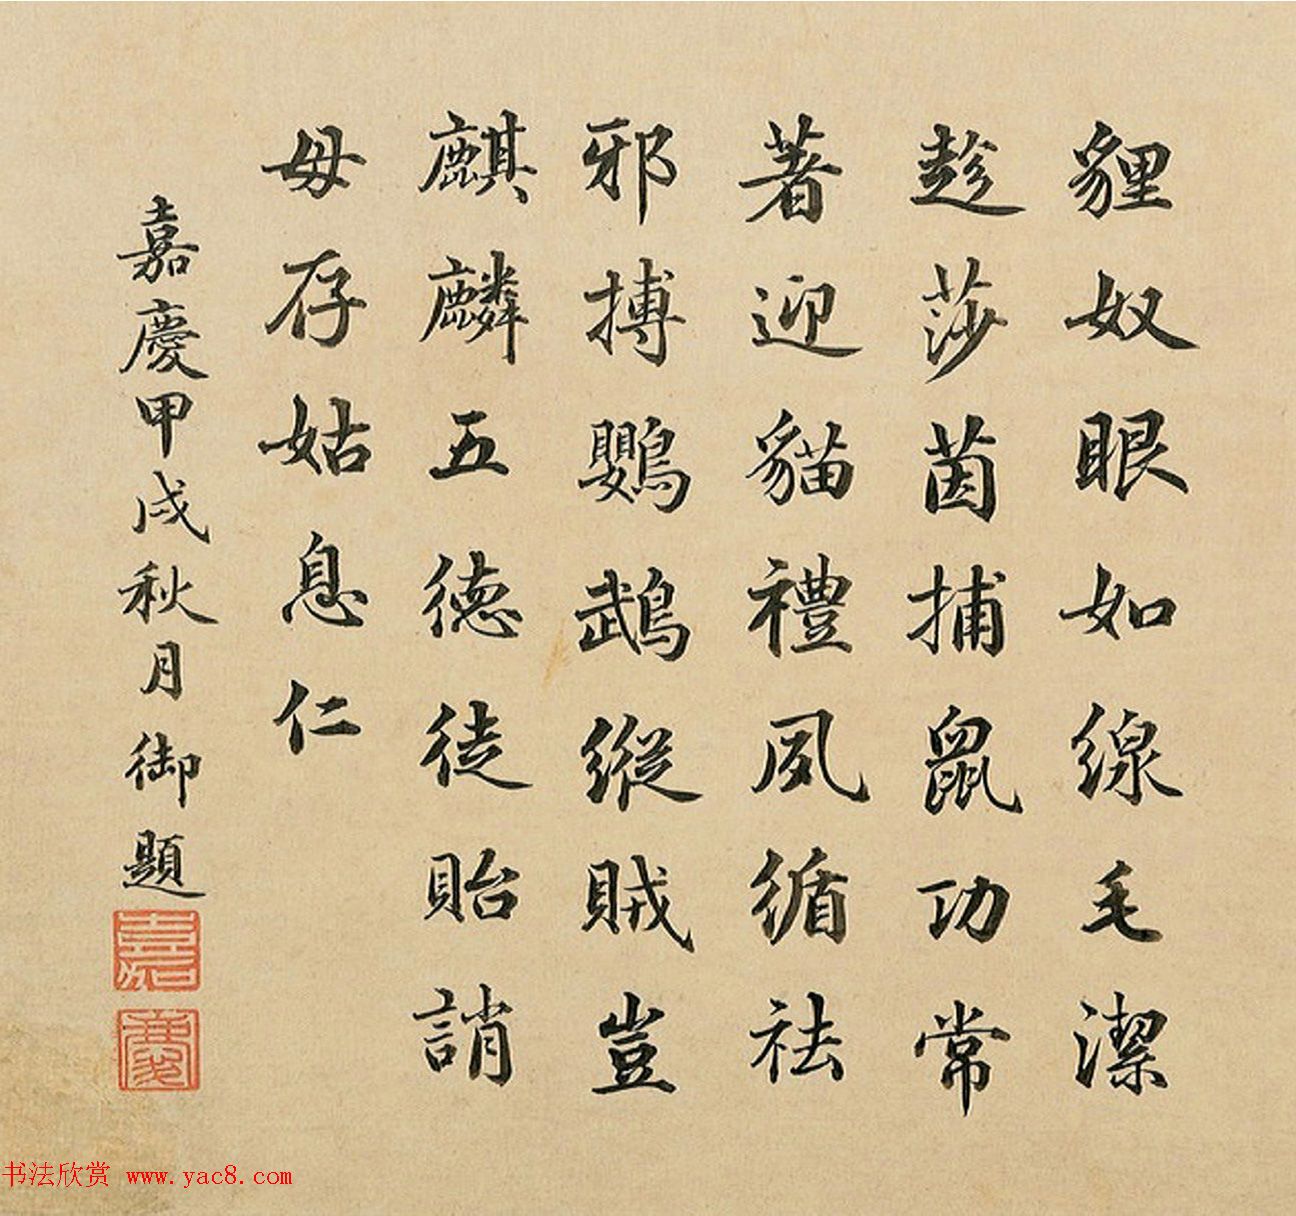 貍奴眼如線毛潔
趁莎茵捕鼠功常
著迎貓禮夙循祛
邪搏鸚鵡縱賊豈
麒麟五德徒貽誚
毋存姑息仁
嘉慶甲戌秋月御題
嘉
慶
书法欣赏 www.yac8.com